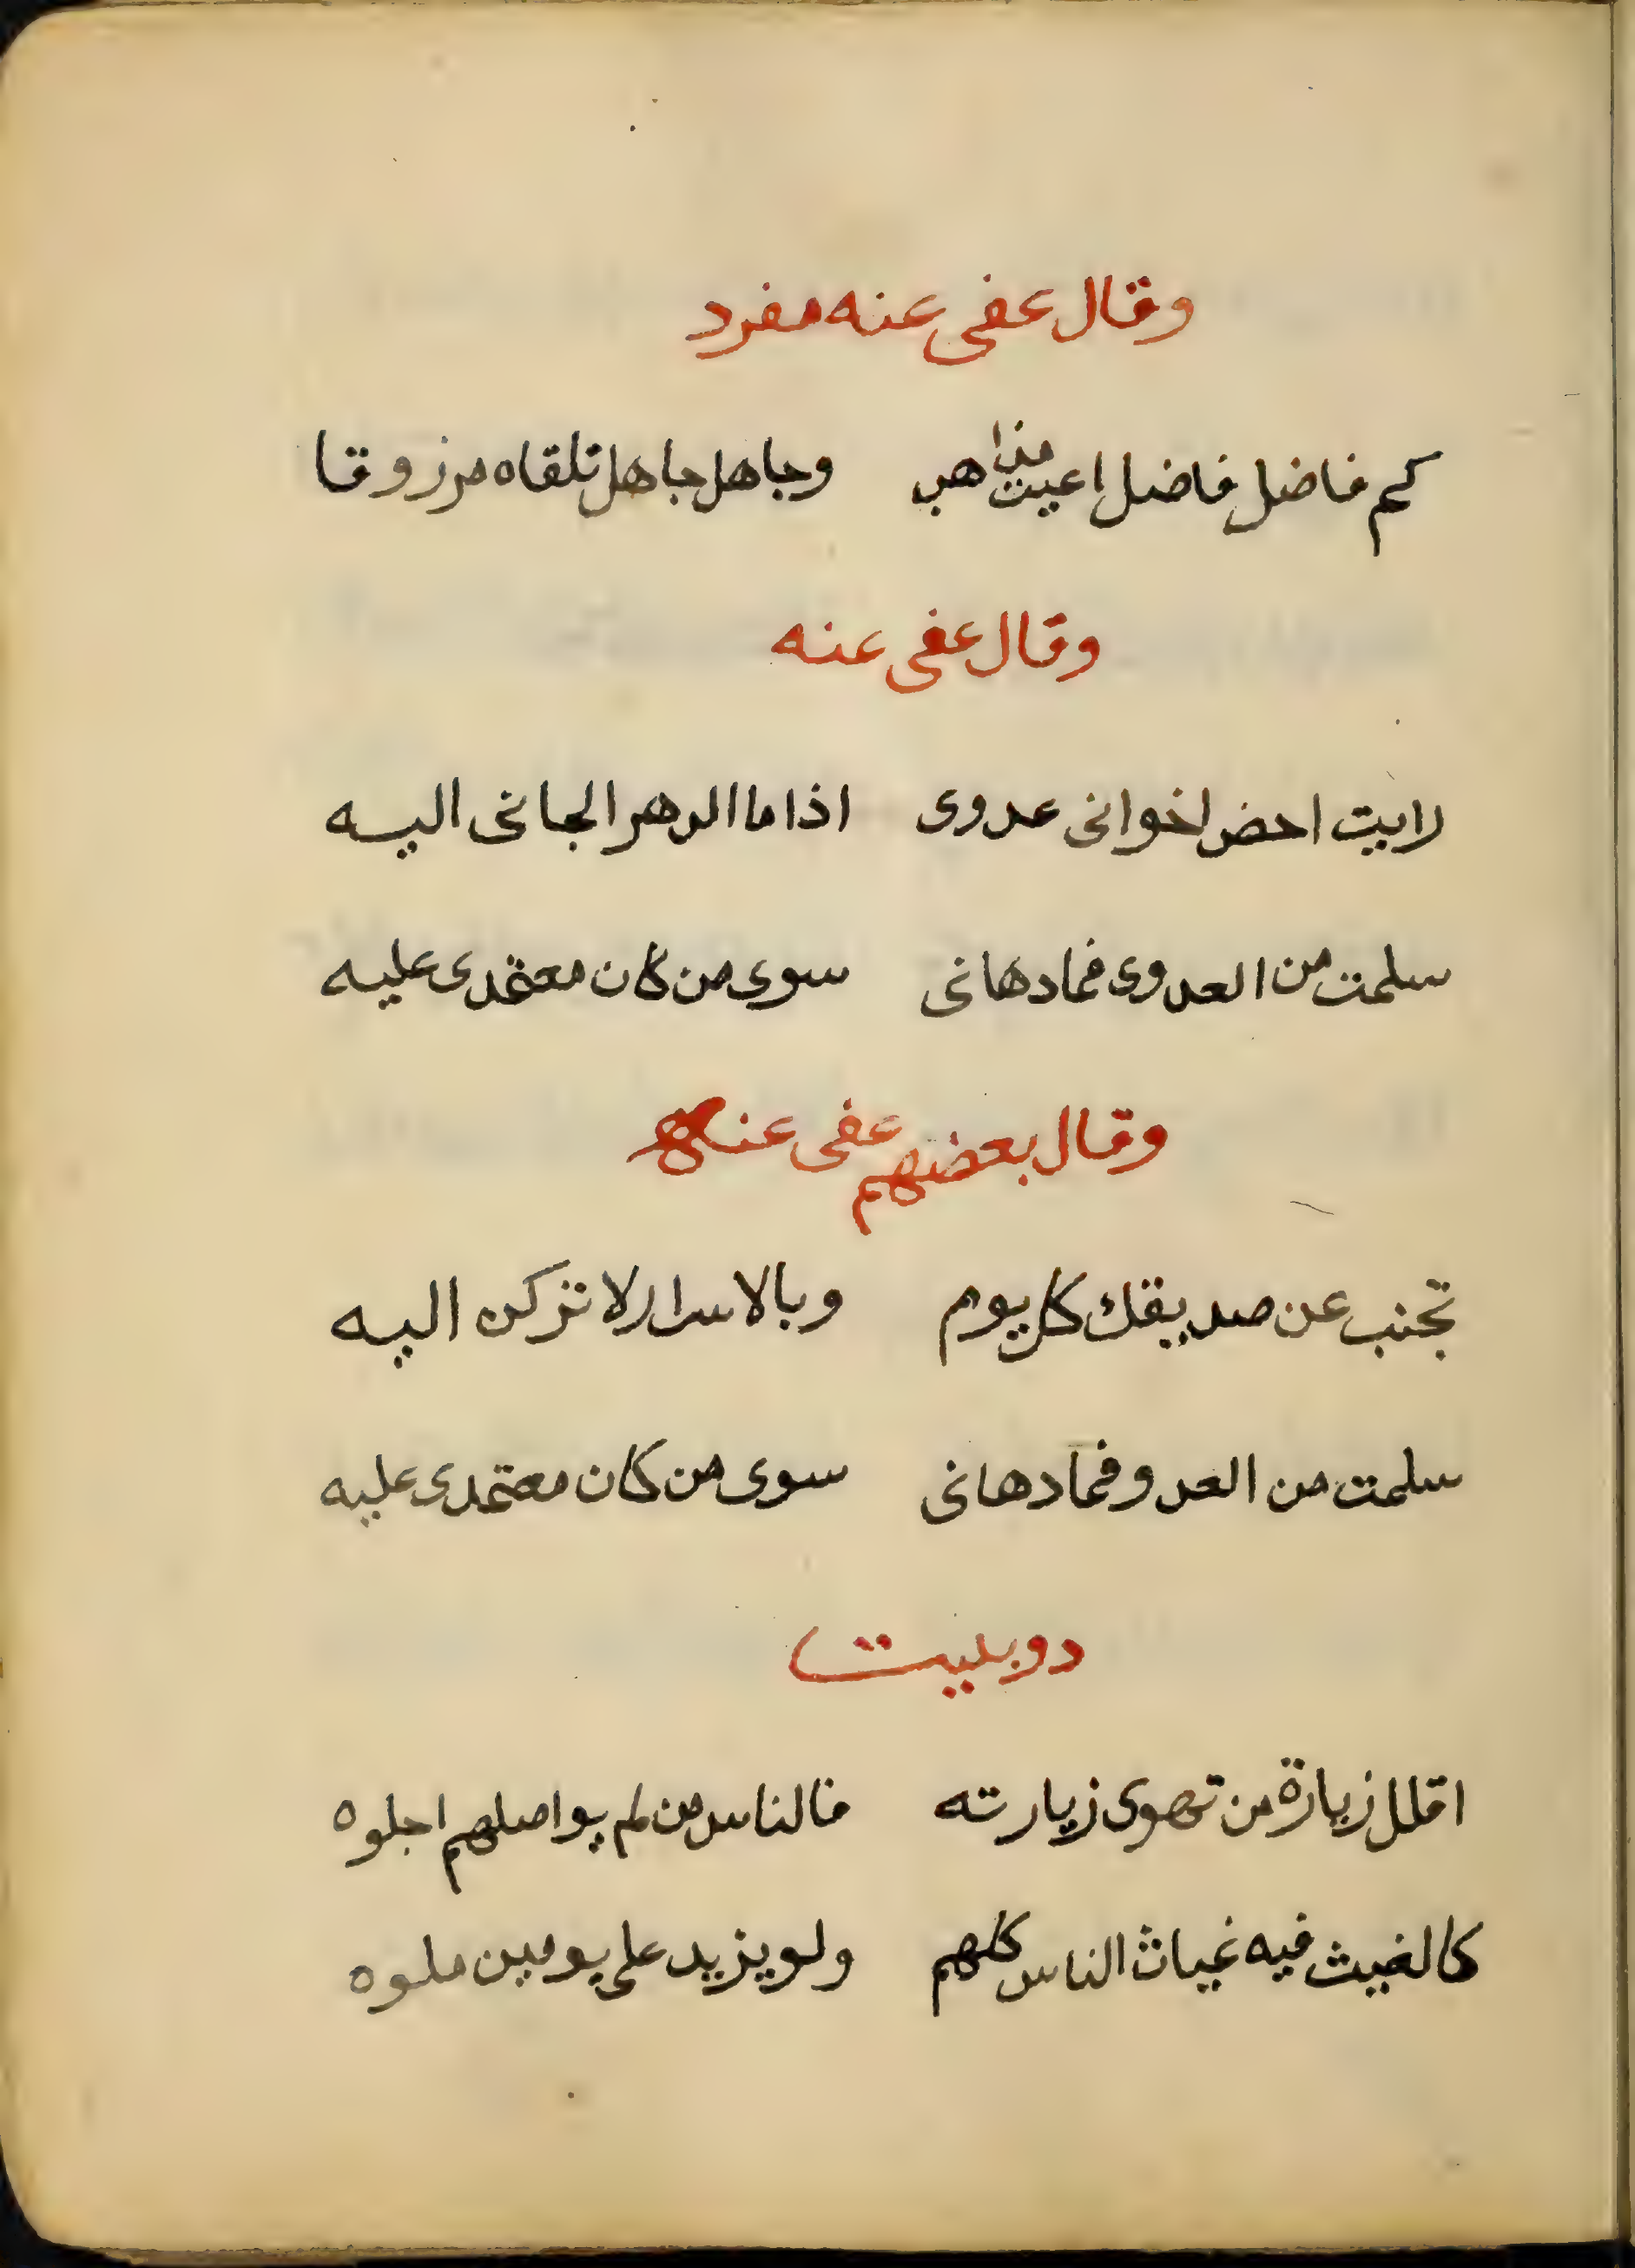 وقال عفى عنه مفرد
كم فاضل فاضل اعيت مذاهبه وجاهل جاهل تلقاه مرزوقا
وقال عفى عنه
رايت احض اخوانى عدوى اذا ما الدهر الجانى اليه
سلمت من العدوى فمادهانى سوى من كان معتمدى عليه
وقال بعضهم عفى عنه
تجنب عن صديقك كل يوم وبالاسرار لا تركن اليه
سلمت من العدو فمادهانى سوى من كان معتمدى عليه
دوبيت
اقلل زيارة من تهوى زيارته فالناس من لم يواصلهم اجلوه
كالغيث فيه غياث الناس كلهم ولو يزيد على يومين ملوه